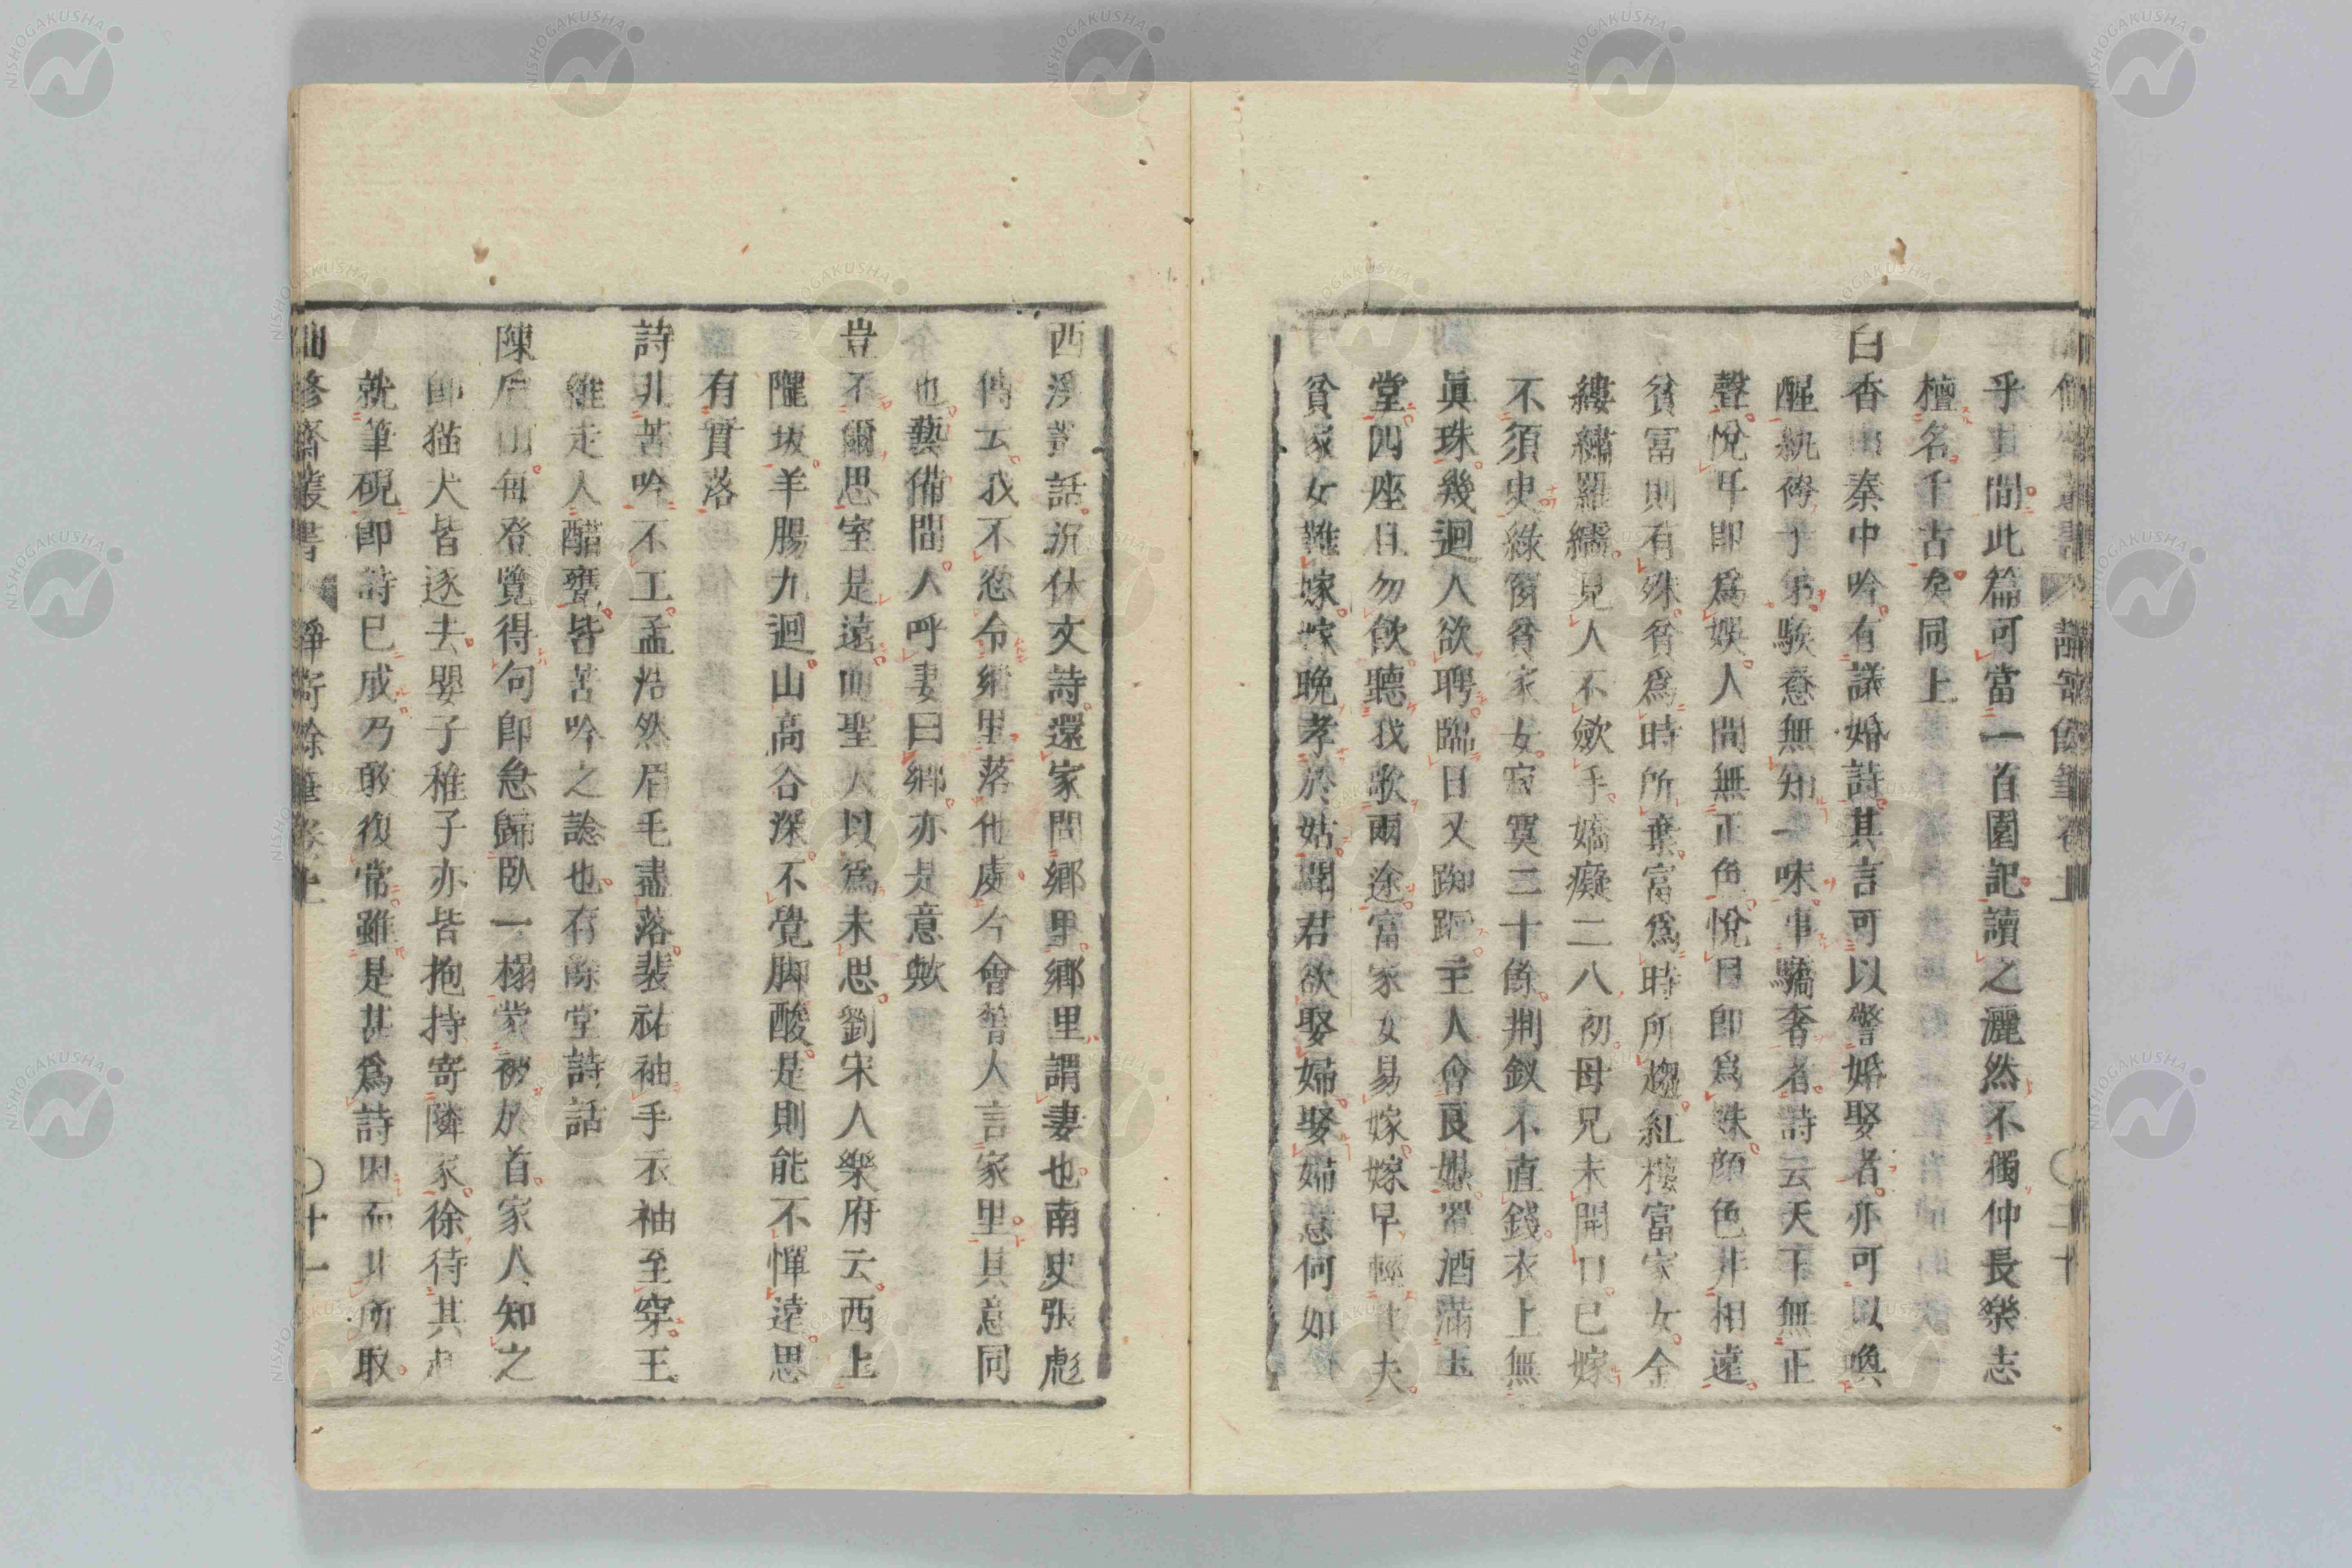 乎其間此篇可當一首園記讀之灑然不獨仲長樂志
檀名千古矣同上
白香山秦中吟有議婚詩其言可以警婚娶者亦可以喚
醒紈袴子弟騃憃無知一味事驕奢者詩云天下無正
聲悅耳即爲娛人間無正色悅目即爲姝顏色非相遠
貧富則有殊貧爲時所棄富爲時所趨紅樓富家女金
縷繡羅襦見人不斂手嬌癡二八初母兄未開口已嫁
不須臾綠窗貧家女寂寞二十餘荆釵不直錢衣上無
眞珠幾迴人欲聘臨日又踟躕主人會良媒置酒滿玉
堂四座且勿飲聽我歌兩途富家女易嫁嫁早輕其夫
貧家女難嫁嫁晚孝於姑聞君欲娶婦娶婦意何如
西溪叢話沉休文詩還家問鄉里鄉里謂妻也南史張彪
傳云我不忍令鄉里落他處今會暨人言家里其意同
也藝備間人呼妻曰鄉亦是意歟
豈不爾思室是遠而聖人以爲未思劉宋人樂府云西上
隴坂羊腸九迴山高谷深不覺脚酸是則能不憚遠思
有實落
詩非苦吟不工孟浩然眉毛盡落裴祐袖手衣袖至穿王
維走入醋甕皆苦吟之諗也存餘堂詩話
陳后山每登覽得句即急歸臥一榻蒙被於首家人知之
即猫犬皆逐去嬰子稚子亦皆抱持寄隣家徐待其起
就筆硯即詩已成乃敢復常雖是甚爲詩因而非所取
仙修齋叢書 靜寄餘筆卷上 〇十一